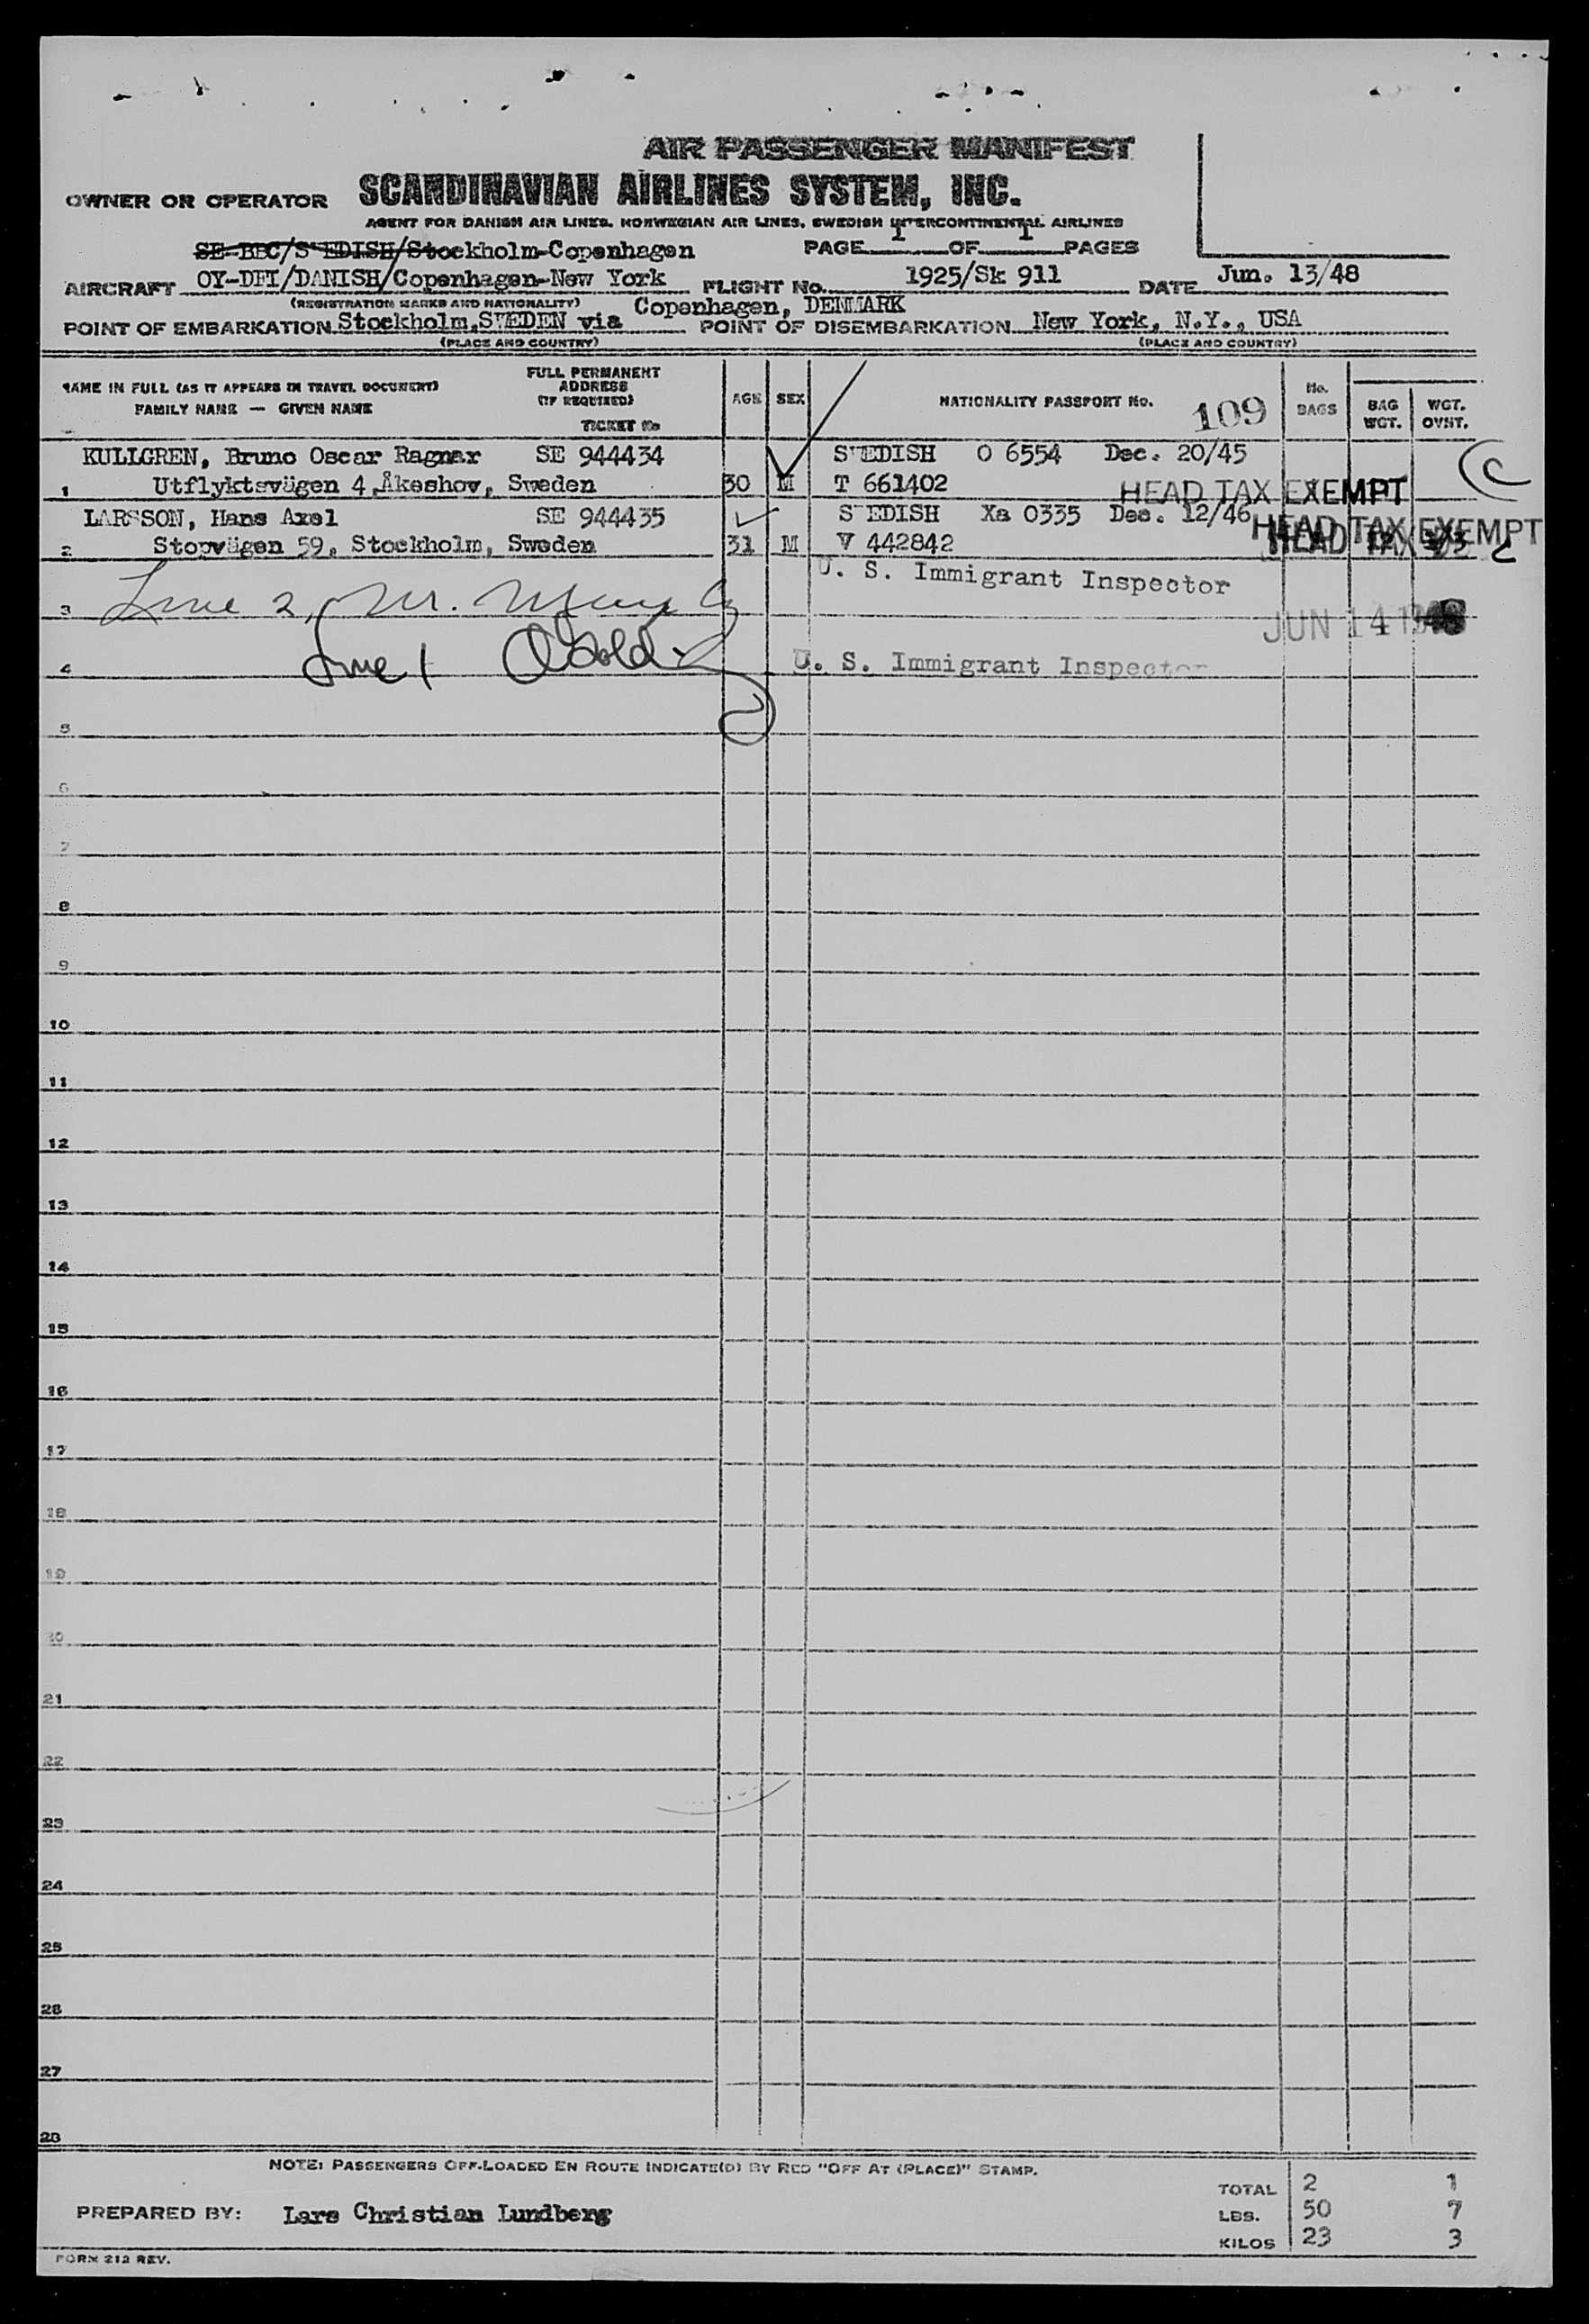 AIR PASSENGER MANIFEST
OWNER OR OPERATOR SCANDINAVIAN AIRLINES SYSTEM, INC.
AGENT FOR DANISH AIR LINES, NORWEGIAN AIR LINES, SWEDISH INTERCONTINENTAL AIRLINES
SE-BBC/SWEDISH/Stockholm-Copenhagen PAGE 1 OF 1 PAGES
AIRCRAFT OY-DFI/DANISH/Copenhagen-New York FLIGHT No. 1925/Sk 911 DATE Jun. 13/48
(REGISTRATION MARKS AND NATIONALITY) Copenhagen, DENMARK
POINT OF EMBARKATION Stockholm, SWEDEN via POINT OF DISEMBARKATION New York, N.Y., USA
(PLACE AND COUNTRY) (PLACE AND COUNTRY)
NAME IN FULL (AS IT APPEARS IN TRAVEL DOCUMENT) FAMILY NAME — GIVEN NAME
FULL PERMANENT ADDRESS (IF REQUIRED) TICKET No
AGE SEX NATIONALITY PASSPORT No. 109 No. BAGS BAG WGT. WGT. OVHT.
KULLGREN, Bruno Oscar Ragnar SE 944434 SWEDISH O 6554 Dec. 20/45
1 Utflyktsvägen 4, Åkeshov, Sweden 30 M T 661402 HEAD TAX EXEMPT C
LARSSON, Hans Axel SE 944435 SWEDISH Xa 0335 Dec. 12/46 HEAD TAX EXEMPT
2 Stopvägen 59, Stockholm, Sweden 31 M V 442842 HEAD TAX
U. S. Immigrant Inspector
3 Line 2, M.
JUN 14 1948
4 Line 1 U. S. Immigrant Inspector
5
6
7
8
9
10
11
12
13
14
15
16
17
18
19
20
21
22
23
24
25
26
27
28
NOTE: PASSENGERS OFF-LOADED EN ROUTE INDICATE(D) BY RED "OFF AT (PLACE)" STAMP.
TOTAL 2 1
PREPARED BY: Lars Christian Lundberg LBS. 50 7
KILOS 23 3
FORM 212 REV.